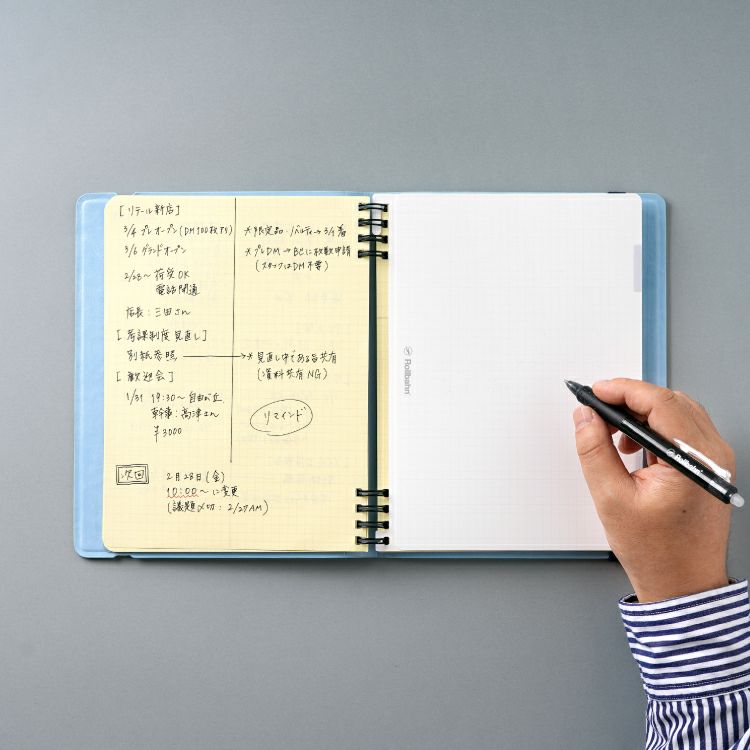 [リテール新店]
3/4 プレオープン(DM100枚TS)
3/6 グランドオープン
2/28〜 荷受OK
電話開通
店長:三田さん
*限定品・ノベルティ→3/1着
*プレDM→BCに枚数申請
(スタッフはDM不要)
制度見直し]
別紙参照 → * 見直し中である旨共有
(資料共有NG)
[歓迎会]
1/31 19:30〜 自由が丘
幹事:高津さん
¥3000
リマインド
次回
2月28日(金)
10:00〜に変更
(議題〆切:2/27AM)
Rollbahn
Rollbahn